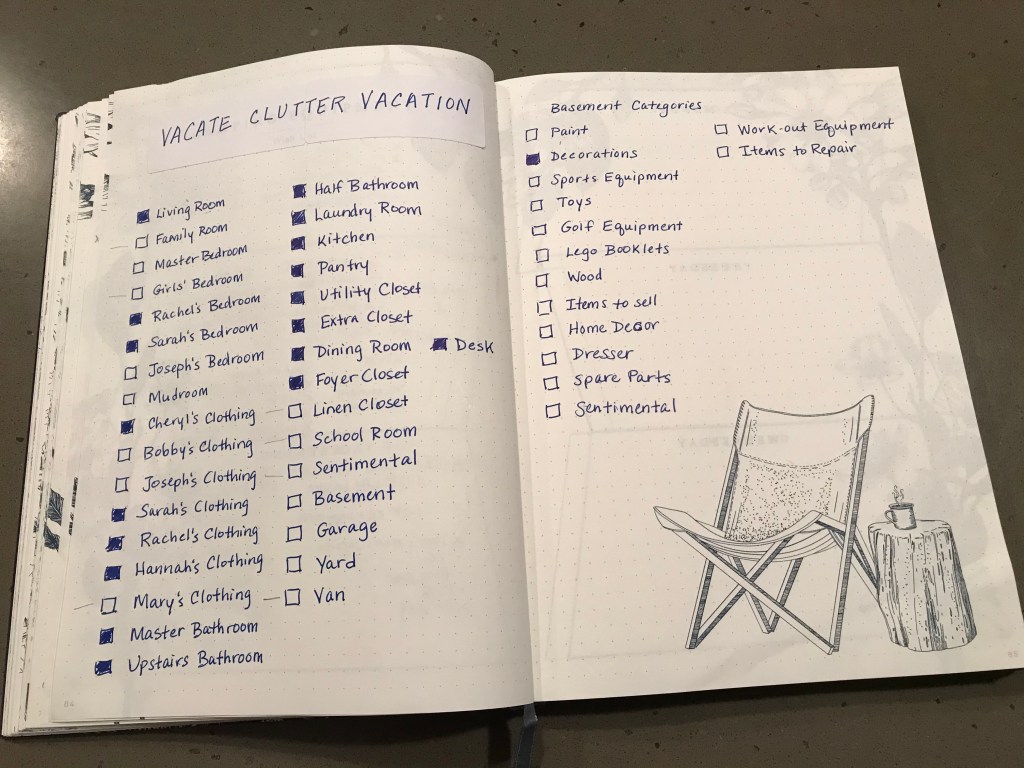 VACATE CLUTTER VACATION
Living Room
Family Room
Master Bedroom
Girls' Bedroom
Rachel's Bedroom
Sarah's Bedroom
Joseph's Bedroom
Mudroom
Cheryl's Clothing
Bobby's Clothing
Joseph's Clothing
Sarah's Clothing
Rachel's Clothing
Hannah's Clothing
Mary's Clothing
Master Bathroom
Upstairs Bathroom
Half Bathroom
Laundry Room
Kitchen
Pantry
Utility Closet
Extra Closet
Dining Room
Foyer Closet
Linen Closet
School Room
Sentimental
Basement
Garage
Yard
Van
Desk
Basement Categories
Paint
Decorations
Sports Equipment
Toys
Golf Equipment
Lego Booklets
Wood
Items to sell
Home Decor
Dresser
Spare Parts
Sentimental
Work-out Equipment
Items to Repair